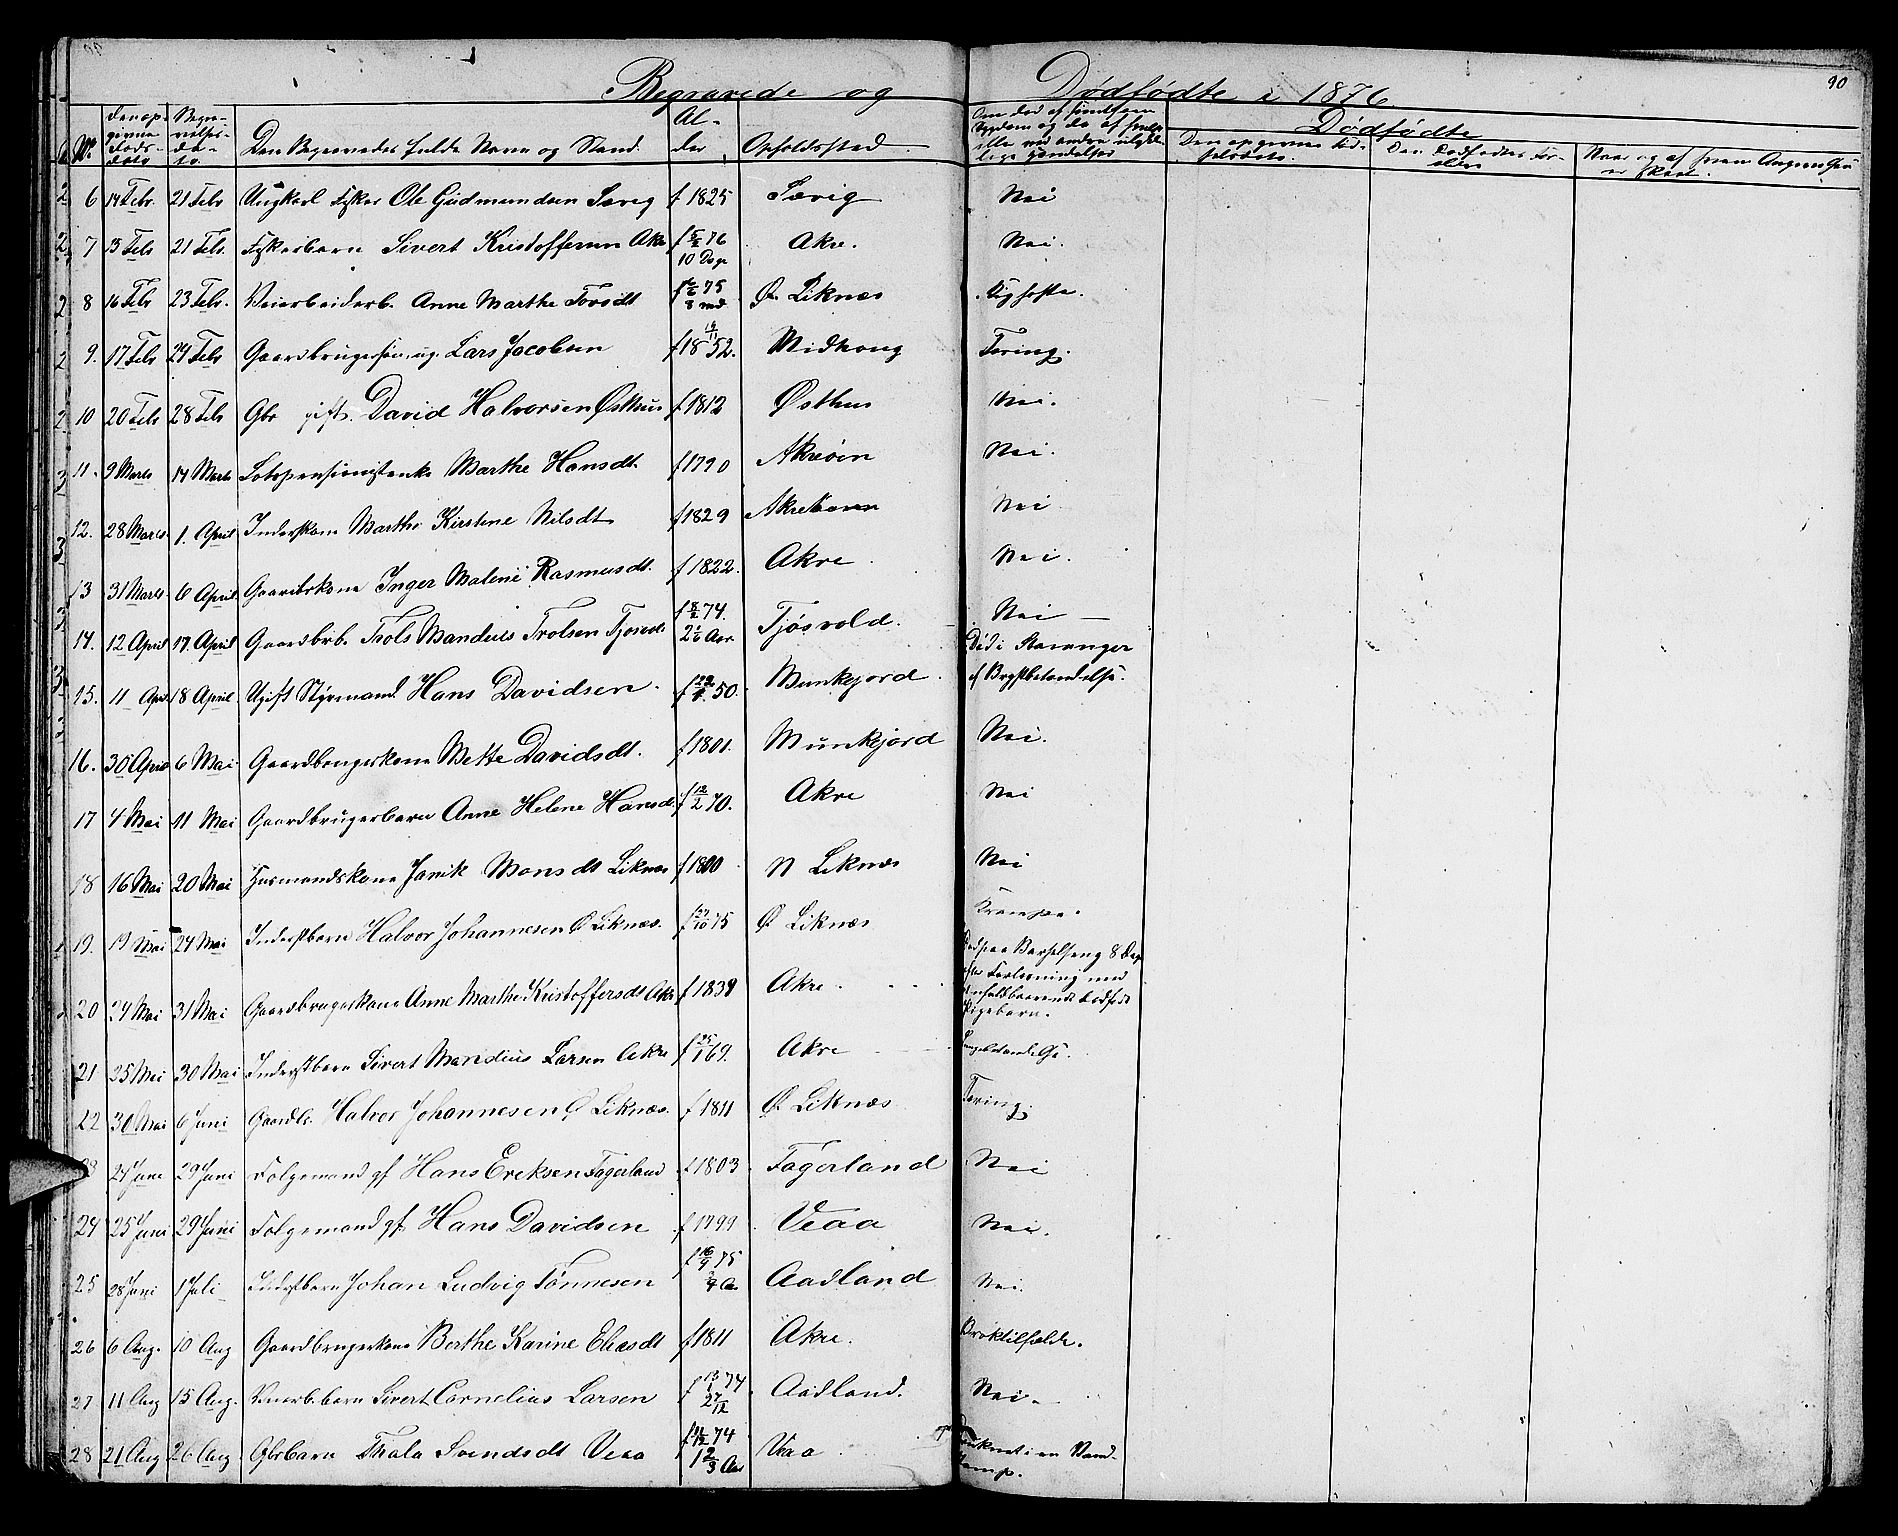 90
Begravede og Dødfødte i 1876
No. Den opgivne Døds-dato Begravelses-dato. Den Begravedes fulde Navn og Stand. Alder Opholdssted
Dødfødte
6 14 Febr. 21 Febr Ungkarl Fisker Ole Gudmundsen Sævig f 1825 Sævig Nei
7 13 Febr 21 Febr. Fiskerbarn Sivert Kristoffersen Akre f 5/2 76 10 Dage Akre. Nei.
8 16 Febr 23 Febr. Veiarbeiderb. Anne Marthe Torsdt 75 8 md Ø. Liknæs Kighoste.
9. 17 Febr 24 Febr Gaardbrugersøn, ug. Lars Jacobsen f 1852. Midhoug Tæring.
10 20 Febr 28 Febr Gbr gift. David Halvorsen Østhus f 1812 Østhus Nei.
11. 9 Marts 14 Marts Lodspensionistenke Marthe Hansdt. f 1790 Akreøen Nei.
12. 28 Marts 1. April Inderstkone Marthe Kirstine Nilsdt f 1829 Akrehavn Nei
13 31 Marts 6 April Gaardbrkone Inger Malene Rasmusdt. f 1822. Akre Nei.
14. 12 April 17 April Gaardbrb. Trols Mandius Trolsen Tjøsvold f 8/2 74. 2 1/6 Aar Tjøsvold. Nei
15. 11 April 18 April Ugift Styrmand Hans Davidsen. f 50. Munkejord. Død i Stavanger
af Brystbetændelse.
16. 30 April 6 Mai Gaardbrugerkone Mette Davidsdt. f 1801. Munkejord Nei.
17 4 Mai 11 Mai Gaardbrugerbarn Anne Helene Hansdt. f 12/2 70. Akre Nei
18 16 Mai 20 Mai Husmandskone Janik Monsdt Liknæs f 1800 N Liknæs Nei
19. 19 Mai 24 Mai Inderstbarn Halvor Johannesen Ø Liknæs. f 27/10 75 Ø Liknæs Krampe.
20 24 Mai 31 Mai Gaardbrugerkone Anne Marthe Kristoffersdt Akre f 1839 Akre. Død paa Barselseng 8 Dage
efter Forløsning med
dødfødt
Pigebarn.
21 25 Mai 30 Mai Inderstbarn Sivert Mandius Larsen Akre f 25/1 69. Akre Lungebetændelse.
22 30 Mai 6 Juni Gaardbr. Halvor Johannesen Ø Liknæs. f 1811 Ø. Liknæs Tæring.
23 24 Juni 29 Juni Folgemand gf Hans Ereksen Fagerland f 1803 Fagerland Nei
24 25 Juni 29 Juni Folgemand gf. Hans Davidsen f 1799 Veaa Nei.
25 28 Juni 1 Juli Inderstbarn Johan Ludvig Tønnesen f 16/9 75 3/4 A. Aadland Nei.
26 6 Aug. 10 Aug Gaardbrugerkone Berthe Karine Eliasdt f 1811 Akre. Broktilfælde.
27 11 Aug 15 Aug. Veiarb.barn Sivert Cornelius Larsen f 13/1 74 2 7/12 Aadland. Nei.
28 21 Aug 26 Aug. Gbrbarn Thala Svendsdt Veaa 74 1 2/3 Aar Veaa Druknet i en Vand-
damp.